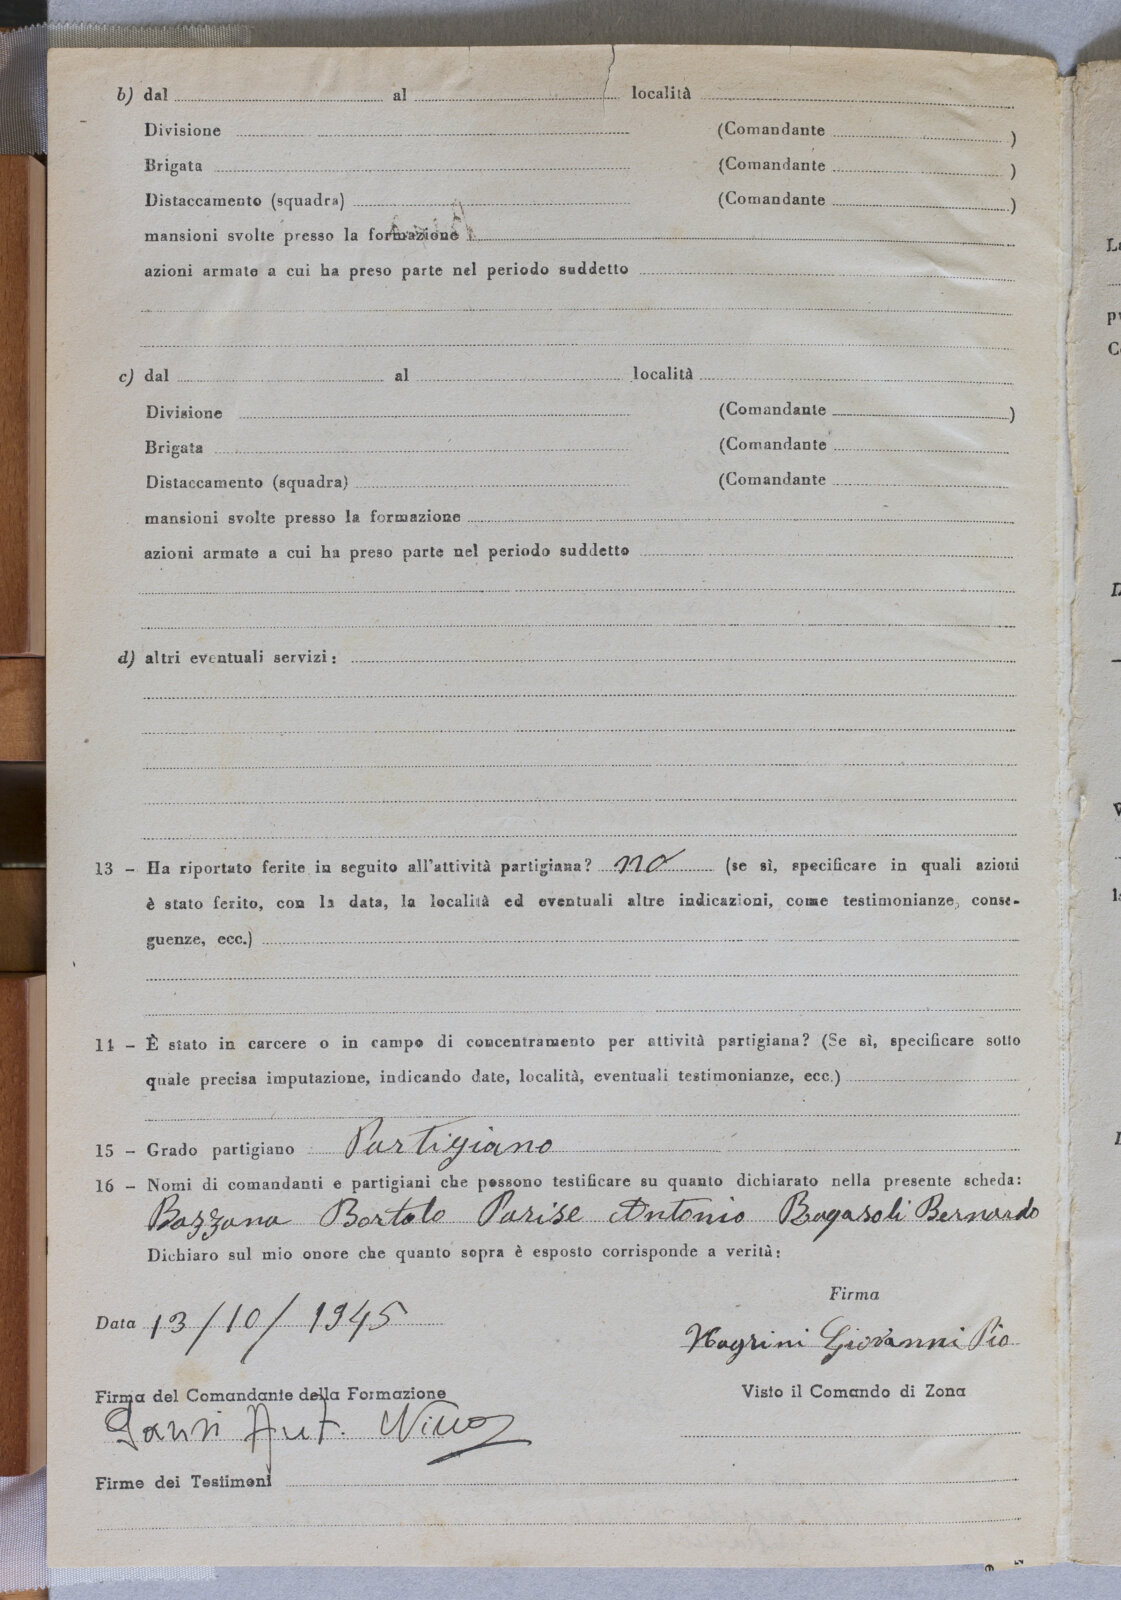 b) dal al località
Divisione (Comandante )
Brigata (Comandante )
Distaccamento (squadra) (Comandante )
mansioni svolte presso la formazione
azioni armate a cui ha preso parte nel periodo suddetto
c) dal al località
Divisione (Comandante )
Brigata (Comandante
Distaccamento (squadra) (Comandante
mansioni svolte presso la formazione
azioni armate a cui ha preso parte nel periodo suddetto
d) altri eventuali servizi :
13 - Ha riportato ferite in seguito all'attività partigiana? no (se sì, specificare in quali azioni
è stato ferito, con la data, la località ed eventuali altre indicazioni, come testimonianze, conse-
guenze, ecc.)
14 - È stato in carcere o in campo di concentramento per attività partigiana? (Se sì, specificare sotto
quale precisa imputazione, indicando date, località, eventuali testimonianze, ecc.)
15 - Grado partigiano Partigiano
16 - Nomi di comandanti e partigiani che possono testificare su quanto dichiarato nella presente scheda:
Bazzana Bortolo Parise Antonio Ragasoli Bernardo
Dichiaro sul mio onore che quanto sopra è esposto corrisponde a verità :
Firma
Data 13/10/1945
Giovanni Pio
Firma del Comandante della Formazione Visto il Comando di Zona
Firme dei Testimoni